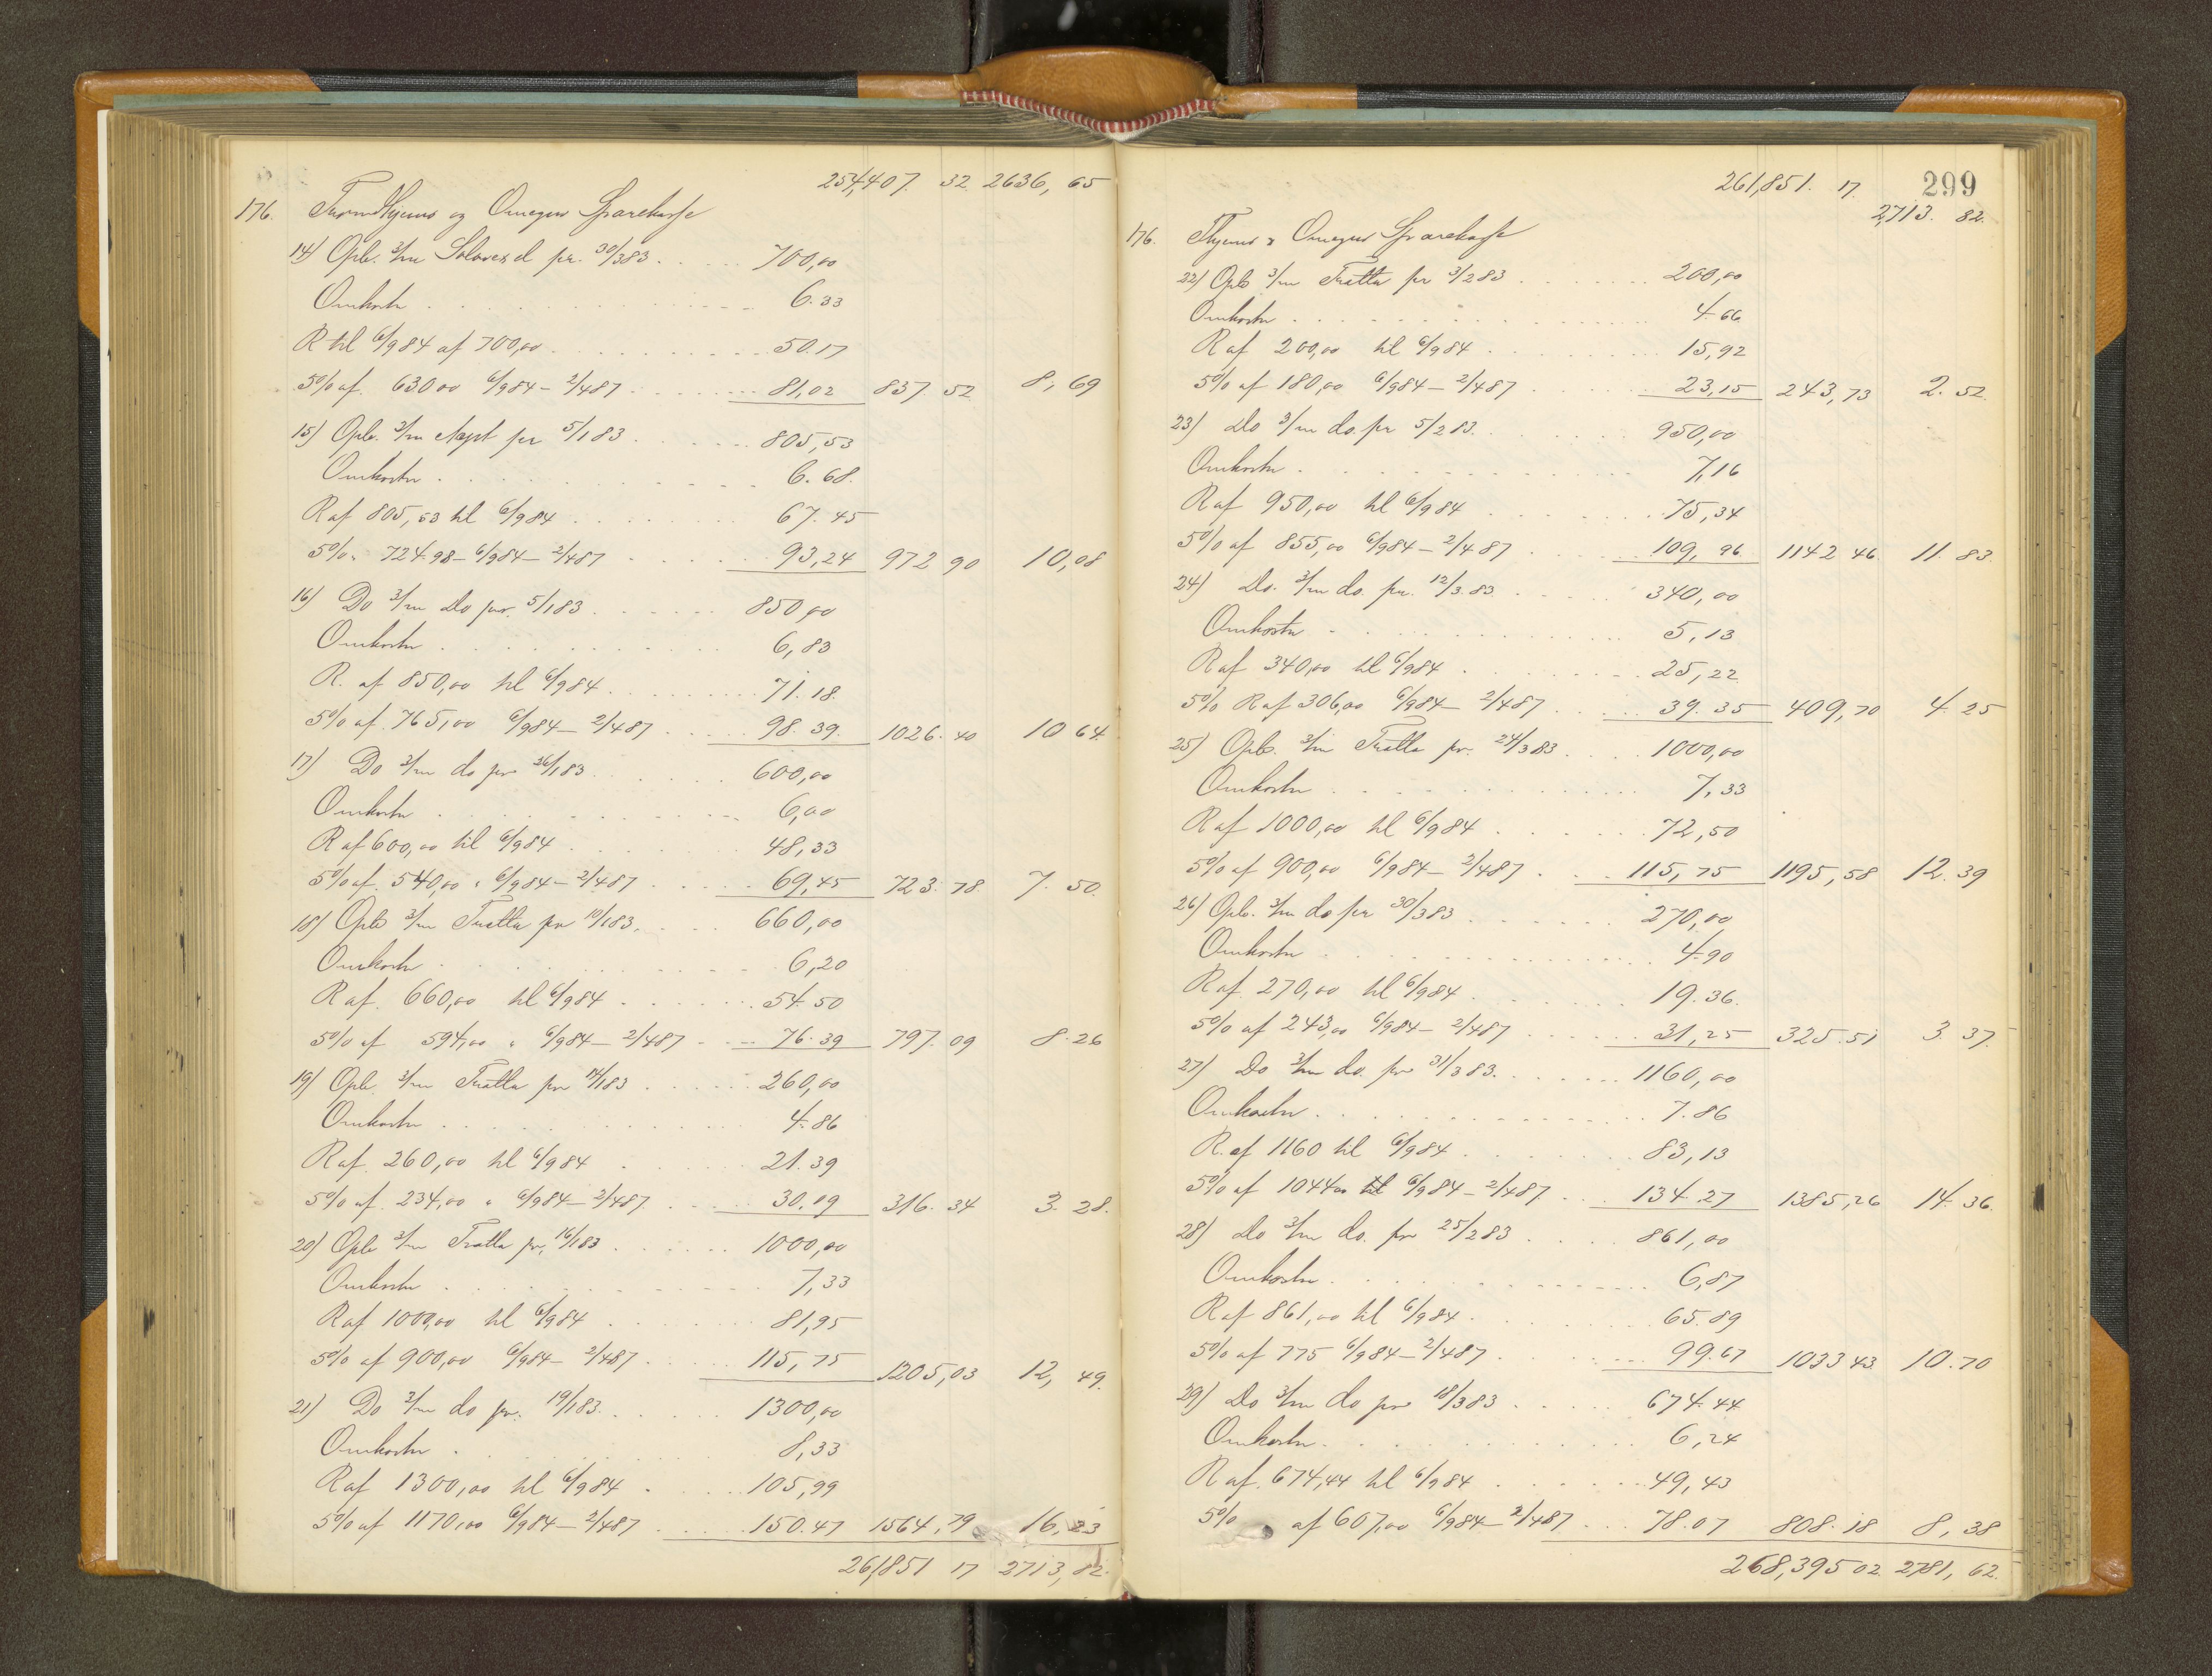 254,407. 32. 2636, 65
176. Trondhjems og Omegns Sparekasse
14) Opb. 3/m Solavexel pr. 30/3 83 . . . 700,00
Omkostn . . . 6.33
R til 6/9 84 af 700,00 . . . 50.17
5% af 630 00 6/9 84 – 2/4 87 . . . 81,02 837. 52 8, 69
15) Opb. 3/m Acpt pr 5/1 83 . . . 805,53
Omkostn . . . 6.68.
R af 805,53 til 6/9 84 . . . 67.45
5% " 724.98 – 6/9 84 – 2/4 87 . . . 93,24 972 90 10,08
16) Do 3/m Do pr. 5/1 83 . . . 850,00
Omkostn . . . 6,83
R. af 850,00 til 6/9 84 . . . 71.18.
5% af 765,00 6/9 84 – 2/4 87 . . . 98.39. 1026.40 10 64.
17) Do 3/m do pr 26/1 83 . . . 600,00
Omkostn . . . 6,00
R af 600,00 til 6/9 84 . . . 48,33
5% af 540,00 " 6/9 84 – 2/4 87 . . . 69,45 723.78. 7. 50.
18) Opb 3/m Tratta pr 10/1 83. . . . 660,00
Omkostn . . . 6,20
R af 660,00 til 6/9 84 . . . 54.50
5% af 594,00 " 6/9 84 – 2/4 87 . . . 76.39 797.09 8.26
19) Opb 3/m Tratta pr 14/1 83 . . . 260,00
Omkostn . . . 4.86
R af 260,00 til 6/9 84 . . . 21.39
5% af 234,00 " 6/9 84 – 2/4 87 . . . 30.09 316.34 3.28.
20) Opb 3/m Tratta pr. 16/1 83 . . . 1000,00
Omkostn . . . 7,33
R af 1000,00 til 6/9 84 . . . 81,95
5% af 900,00 6/9 84 – 2/4 87 . . . 115,75 1205,03 12, 49.
21) Do 3/m do pr. 19/1 83. . . . 1300,00
Omkostn . . . 8,33
R af 1300,00 til 6/9 84 . . . 105,99
5% af 1170,00 6/9 84 – 2/4 87 . . . 150.47 1564,79 16,23
261,851 17 2713,82.
299
261,851. 17. 2,713. 82.
176. Thjems & Omegns Sparekasse
22) Opb 3/m Tratta pr 3/2 83 . . . 200,00
Omkostn . . . 4.66
R af 200,00 til 6/9 84 . . . 15,92
5% af 180,00 6/9 84 – 2/4 87 . . . 23,15 243,73 2.52.
23) Do 3/m do. pr 5/2 83. . . . 950,00
Omkostn . . . 7,16
R af 950,00 til 6/9 84 . . . 75,34
5% af 855,00 6/9 84 – 2/4 87 . . . 109,96 1142 46. 11.83.
24) Do. 3/m do. pr. 12/3 83. . . . 340,00
Omkostn . . . 5,13
R af 340,00 til 6/9 84 . . . 25,22
5% R af 306,00 6/9 84 – 2/4 87 . . . 39.35 409,70 4.25
25) Opb. 3/m Tratta pr. 24/3 83 . . . 1000,00
Omkostn . . . 7,33
R af 1000,00 til 6/9 84 . . . 72,50
5% af 900,00 6/9 84 – 2/4 87 . . . 115,75 1195,58 12.39
26) Opb. 3/m do pr 30/3 83 . . . 270,00
Omkostn . . . 4.90
R af 270,00 til 6/9 84 . . . 19.36.
5% af 243,00 6/9 84 – 2/4 87 . . . 31,25 325.51 3.37.
27) Do 3/m do. pr 31/3 83. . . . 1160,00
Omkostn . . . 7.86
R. af 1160 til 6/9 84 . . . 83,13
5% af 1044 00 til 6/9 84 – 2/4 87 . . . 134.27 1385,26 14.36.
28) Do 3/m do. pr 25/2 83 . . . 861,00
Omkostn . . . 6,87
R af 861,00 til 6/9 84 . . . 65.89
5% af 775 6/9 84 – 2/4 87 . . . 99.67 1033 43. 10.70
29) Do 3/m do pr 18/3 83 . . . 674.44
Omkostn . . . 6,24
R af 674,44 til 6/9 84 . . . 49,43
5% af 607,00 6/9 84 – 2/4 87 . . . 78.07 808.18 8,38
268,395 02. 2781, 62.